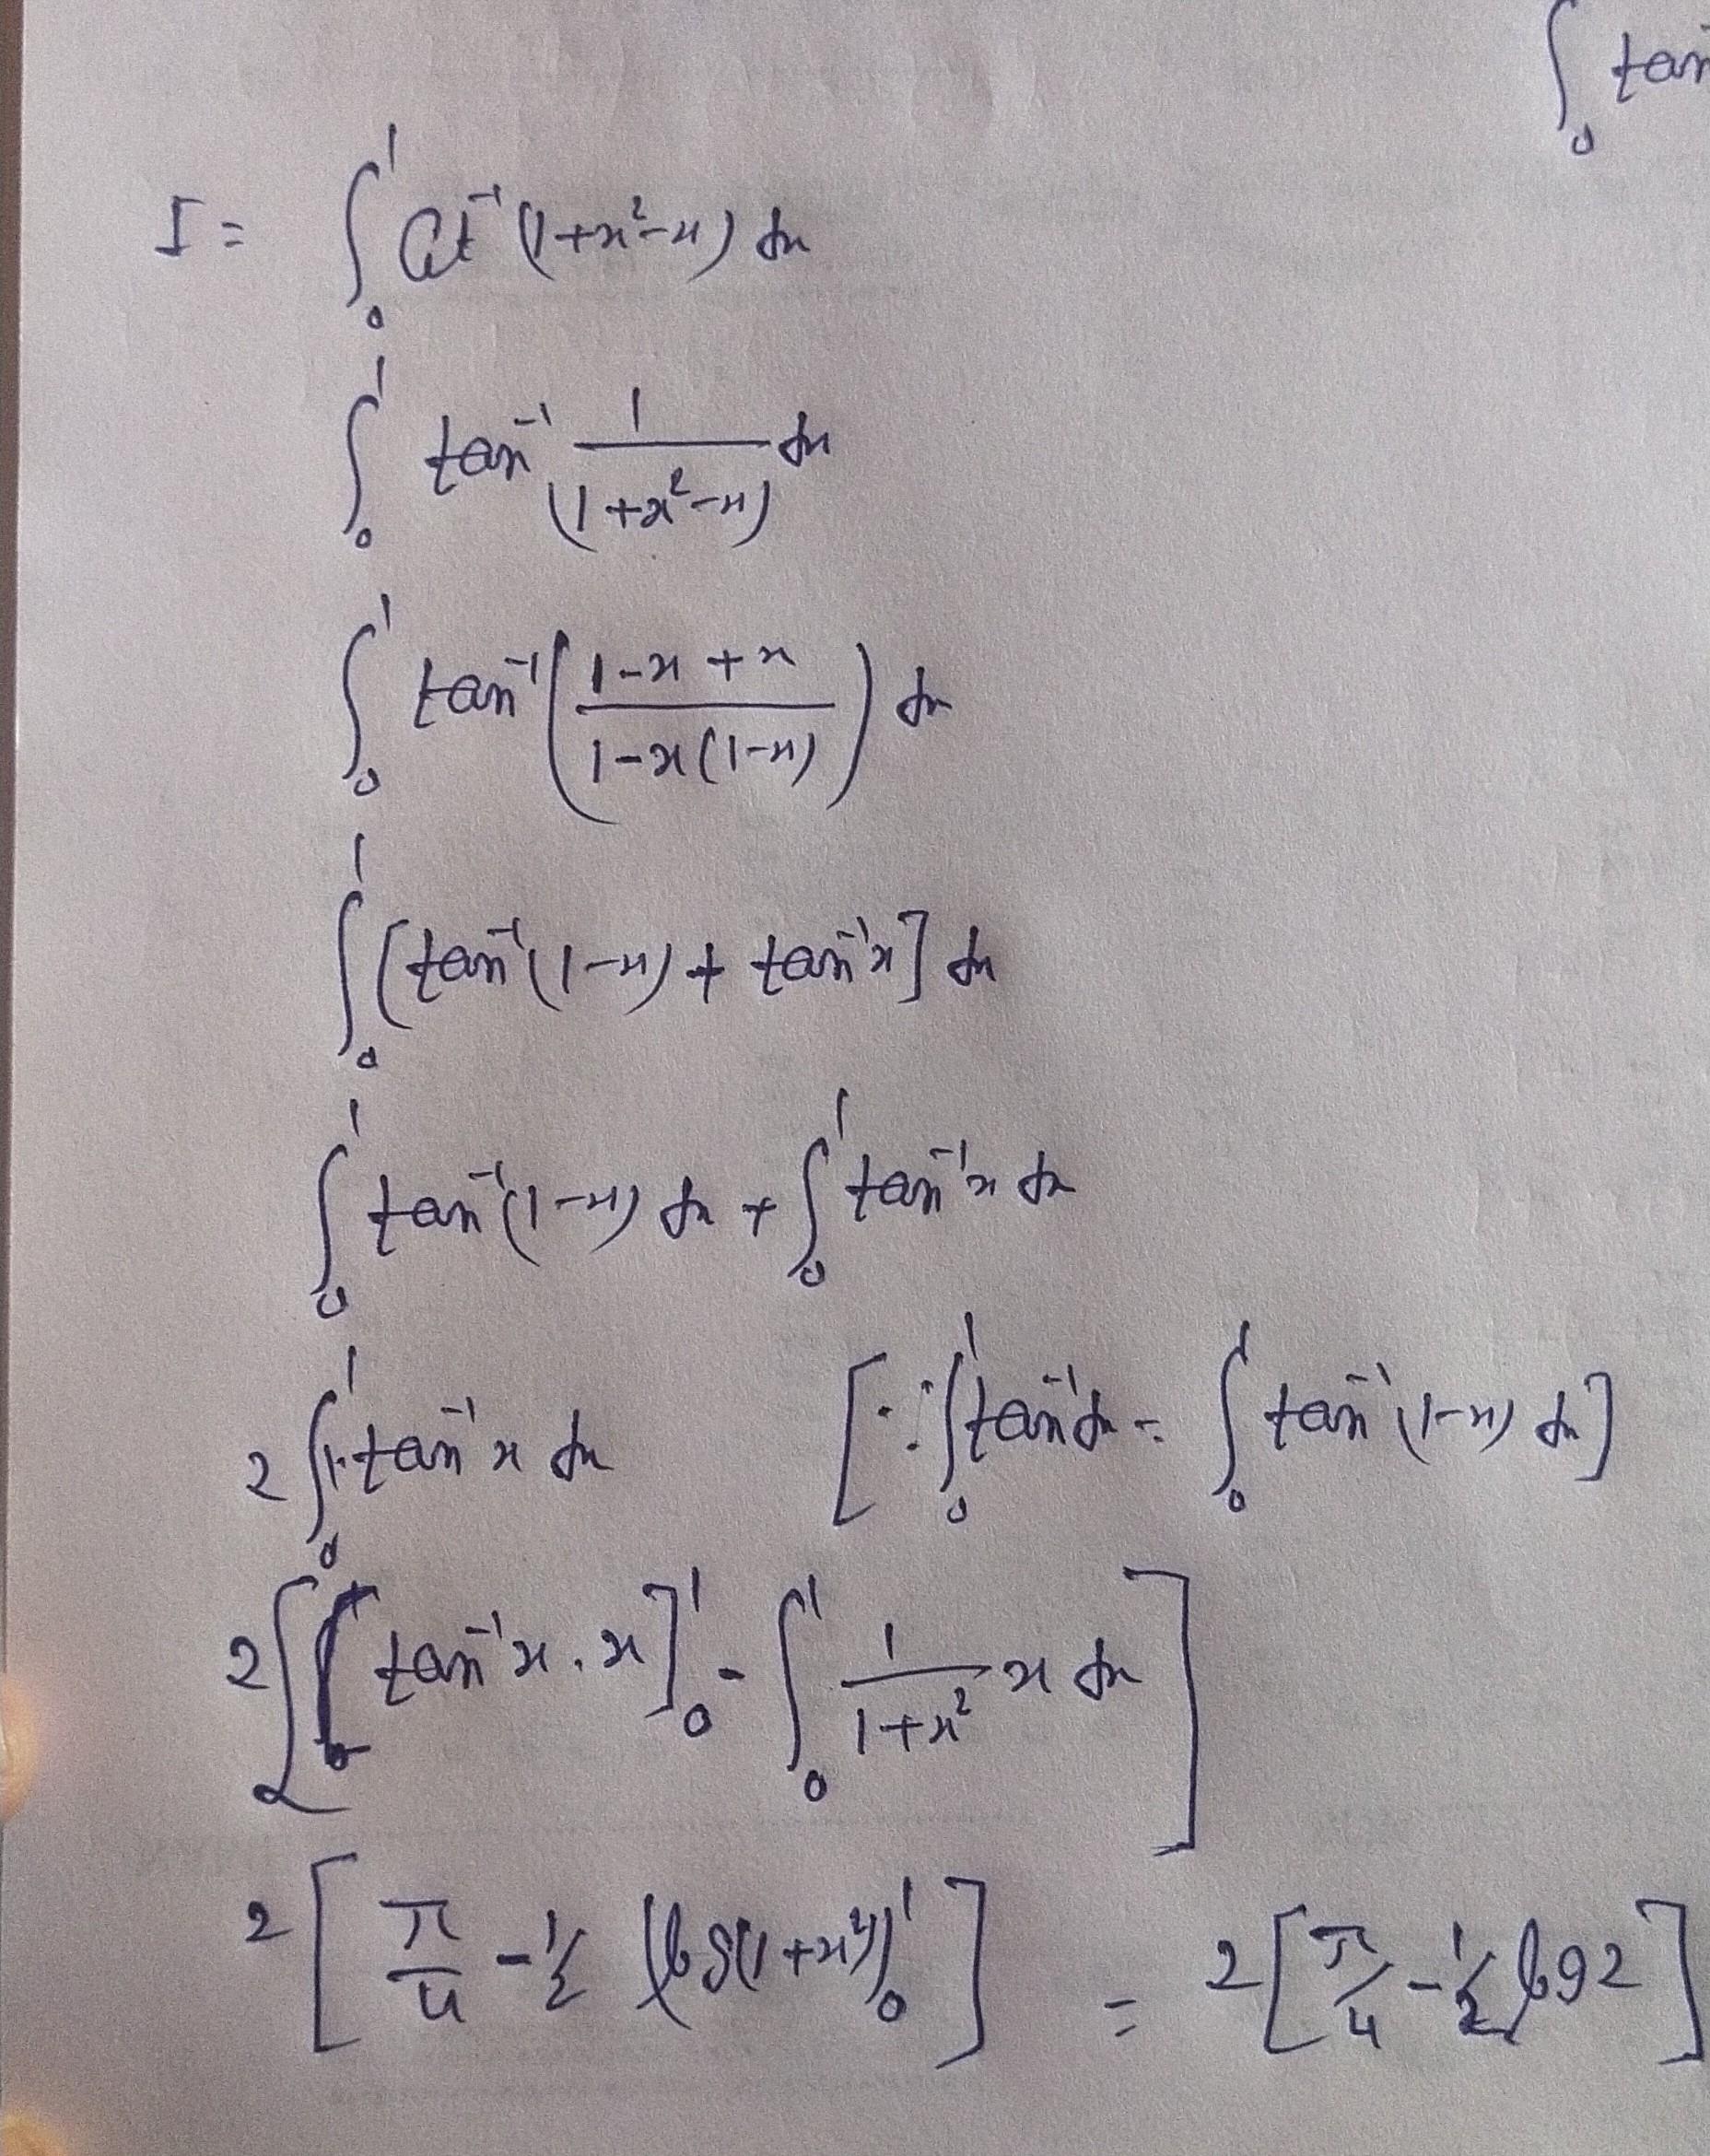 ∫₀ tan
I = ∫₀¹ Cot⁻¹ (1+x²-x) dx
∫₀¹ tan⁻¹ 1/(1+x²-x) dx
∫₀¹ tan⁻¹ ( (1-x+x)/(1-x(1-x)) ) dx
∫₀¹ [tan⁻¹(1-x) + tan⁻¹x] dx
∫₀¹ tan⁻¹(1-x) dx + ∫₀¹ tan⁻¹x dx
2 ∫₀¹ 1·tan⁻¹x dx [∵ ∫₀¹ tan⁻¹ dx = ∫₀¹ tan⁻¹(1-x) dx]
2 [ [tan⁻¹x . x]₀¹ - ∫₀¹ 1/(1+x²) x dx ]
2 [ π/4 - 1/2 (log(1+x²))₀¹ ] = 2 [π/4 - 1/2 log 2]